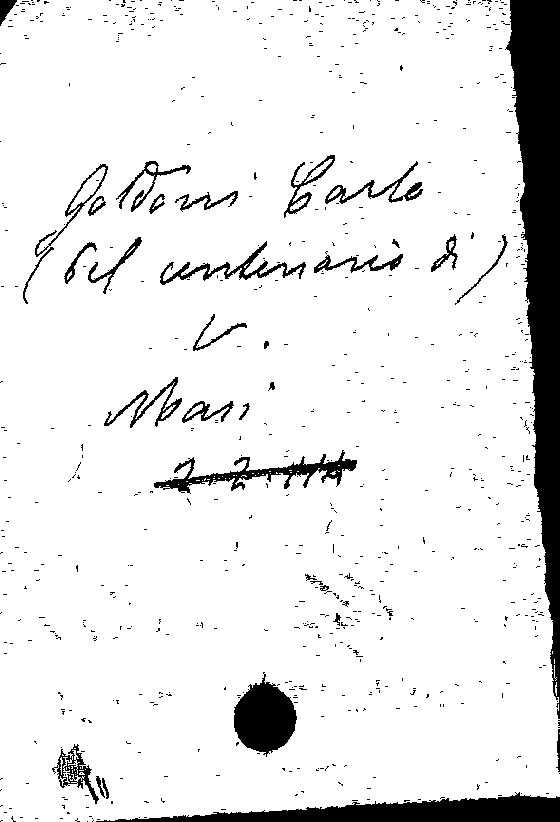 Goldoni Carlo
(Del centenario di)
V.
Masi
2. 2. 114